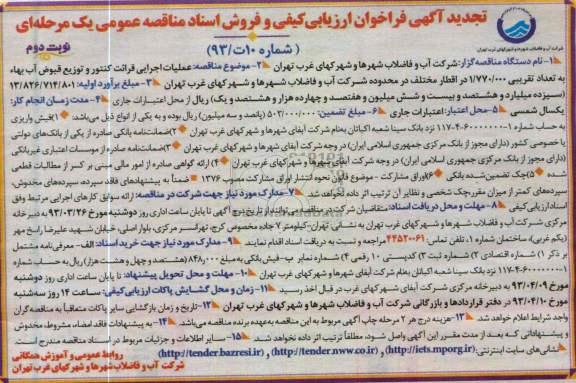 تجدید آگهی فراخوان ارزیابی کیفی و فروش اسناد مناقصه عمومی یک مرحله‌ای
(شماره ۱۰ت/۹۳)
نوبت دوم
شرکت آب و فاضلاب شهرها و شهرکهای غرب تهران
۱- نام دستگاه مناقصه گزار: شرکت آب و فاضلاب شهرها و شهرکهای غرب تهران ۲- موضوع مناقصه: عملیات اجرایی قرائت کنتور و توزیع قبوض آب بهاء
به تعداد تقریبی ۱/۷۷۰/۰۰۰ در اقطار مختلف در محدوده شرکت آب و فاضلاب شهرها و شهرکهای غرب تهران ۳- مبلغ برآورد اولیه: ۱۳/۸۲۶/۷۱۴/۸۰۱
(سیزده میلیارد و هشتصد و بیست و شش میلیون و هفتصد و چهارده هزار و هشتصد و یک) ریال از محل اعتبارات جاری ۴- مدت زمان انجام کار:
یکسال شمسی ۵- محل اعتبار: اعتبارات جاری ۶- مبلغ تضمین: ۵۰۳/۰۰۰/۰۰۰ (پانصد و سه میلیون) ریال بوده و به یکی از انواع ذیل می‌باشد: ۱) فیش واریزی
به حساب شماره ۱-۶۰۰۰۰۰۰-۴-۱۱۷ نزد بانک سینا شعبه اکباتان بنام شرکت آبفای شهرها و شهرکهای غرب تهران ۲) ضمانت‌نامه بانکی صادره از یکی از بانک‌های دولتی
یا خصوصی کشور (دارای مجوز از بانک مرکزی جمهوری اسلامی ایران) در وجه شرکت آبفای شهرها و شهرکهای غرب تهران ۳) ضمانت‌نامه صادره از موسسات اعتباری غیربانکی
(دارای مجوز از بانک مرکزی جمهوری اسلامی ایران) در وجه شرکت آبفای شهرها و شهرکهای غرب تهران ۴) ارائه گواهی صادره از امور مالی مبنی بر کسر از مطالبات قطعی
شده ۵) چک تضمین شده بانکی ۶) اوراق مشارکت - موضوع قانون نحوه انتشار اوراق مشارکت مصوب ۱۳۷۶ ضمناً به پیشنهادهای فاقد سپرده، سپرده‌های مخدوش،
سپرده‌های کمتر از میزان مقرر، چک شخصی و نظایر آن ترتیب اثر داده نخواهد شد. ۷- مدارک مورد نیاز جهت شرکت در مناقصه: ارائه سوابق کارهای اجرایی مرتبط وفق
اسناد ارزیابی کیفی ۸- مهلت و محل دریافت اسناد: متقاضیان شرکت در مناقصه می‌توانند از تاریخ درج آگهی تا پایان ساعت اداری روز دوشنبه مورخ ۹۳/۰۳/۲۶ به دبیرخانه
مرکزی شرکت آب و فاضلاب شهرها و شهرکهای غرب تهران به نشانی: تهران-کیلومتر ۷ جاده مخصوص کرج، تهرانسر مرکزی، بلوار اصلی، خیابان شهید علیرضا راسخ مهر
(یکم غربی)، ساختمان شماره ۱، تلفن تماس: ۴۴۵۲۰۰۶۱ مراجعه و نسبت به دریافت اسناد اقدام نمایند. ۹- مدارک مورد نیاز جهت خرید اسناد: الف- معرفی‌نامه مشتمل
بر ذکر ۱) شماره اقتصادی ۲) شماره ثبت ۳) کدپستی ۱۰ رقمی ۴) شماره نمابر ب- فیش بانکی به مبلغ ۸۴۸٬۰۰۰ (هشتصد و چهل و هشت هزار) ریال به حساب شماره
۱-۶۰۰۰۰۰۰-۴-۱۱۷ نزد بانک سینا شعبه اکباتان بنام شرکت آبفای شهرها و شهرکهای غرب تهران ۱۰- مهلت و محل تحویل پیشنهاد: تا پایان ساعت اداری روز دوشنبه
مورخ ۹۳/۰۴/۰۹ به دبیرخانه مرکزی شرکت آبفای شهرها و شهرکهای غرب در قبال اخذ رسید ۱۱- زمان و محل گشایش پاکات ارزیابی کیفی: ساعت ۱۴ روز سه‌شنبه
مورخ ۹۳/۰۴/۱۰ در دفتر قراردادها و بازرگانی شرکت آب و فاضلاب شهرها و شهرکهای غرب تهران ۱۲- تاریخ و زمان بازگشایی سایر پاکات متعاقباً به مناقصه گران
واجد شرایط اعلام خواهد شد. ۱۳- هزینه درج هر ۲ مرحله چاپ آگهی مربوط به این مناقصه به عهده برنده مناقصه می‌باشد. ۱۴- به پیشنهادات فاقد امضاء، مشروط، مخدوش
و پیشنهاداتی که بعد از مدت مقرر این آگهی واصل شود، مطلقاً ترتیب اثر داده نخواهد شد. ۱۵- سایر اطلاعات و جزئیات مربوط در اسناد مناقصه مندرج است.
نشانی‌های سایت اینترنتی: (http://iets.mporg.ir) و (http://tender.nww.co.ir) و (http://tender.bazresi.ir)
روابط عمومی و آموزش همگانی
شرکت آب و فاضلاب شهرها و شهرکهای غرب تهران